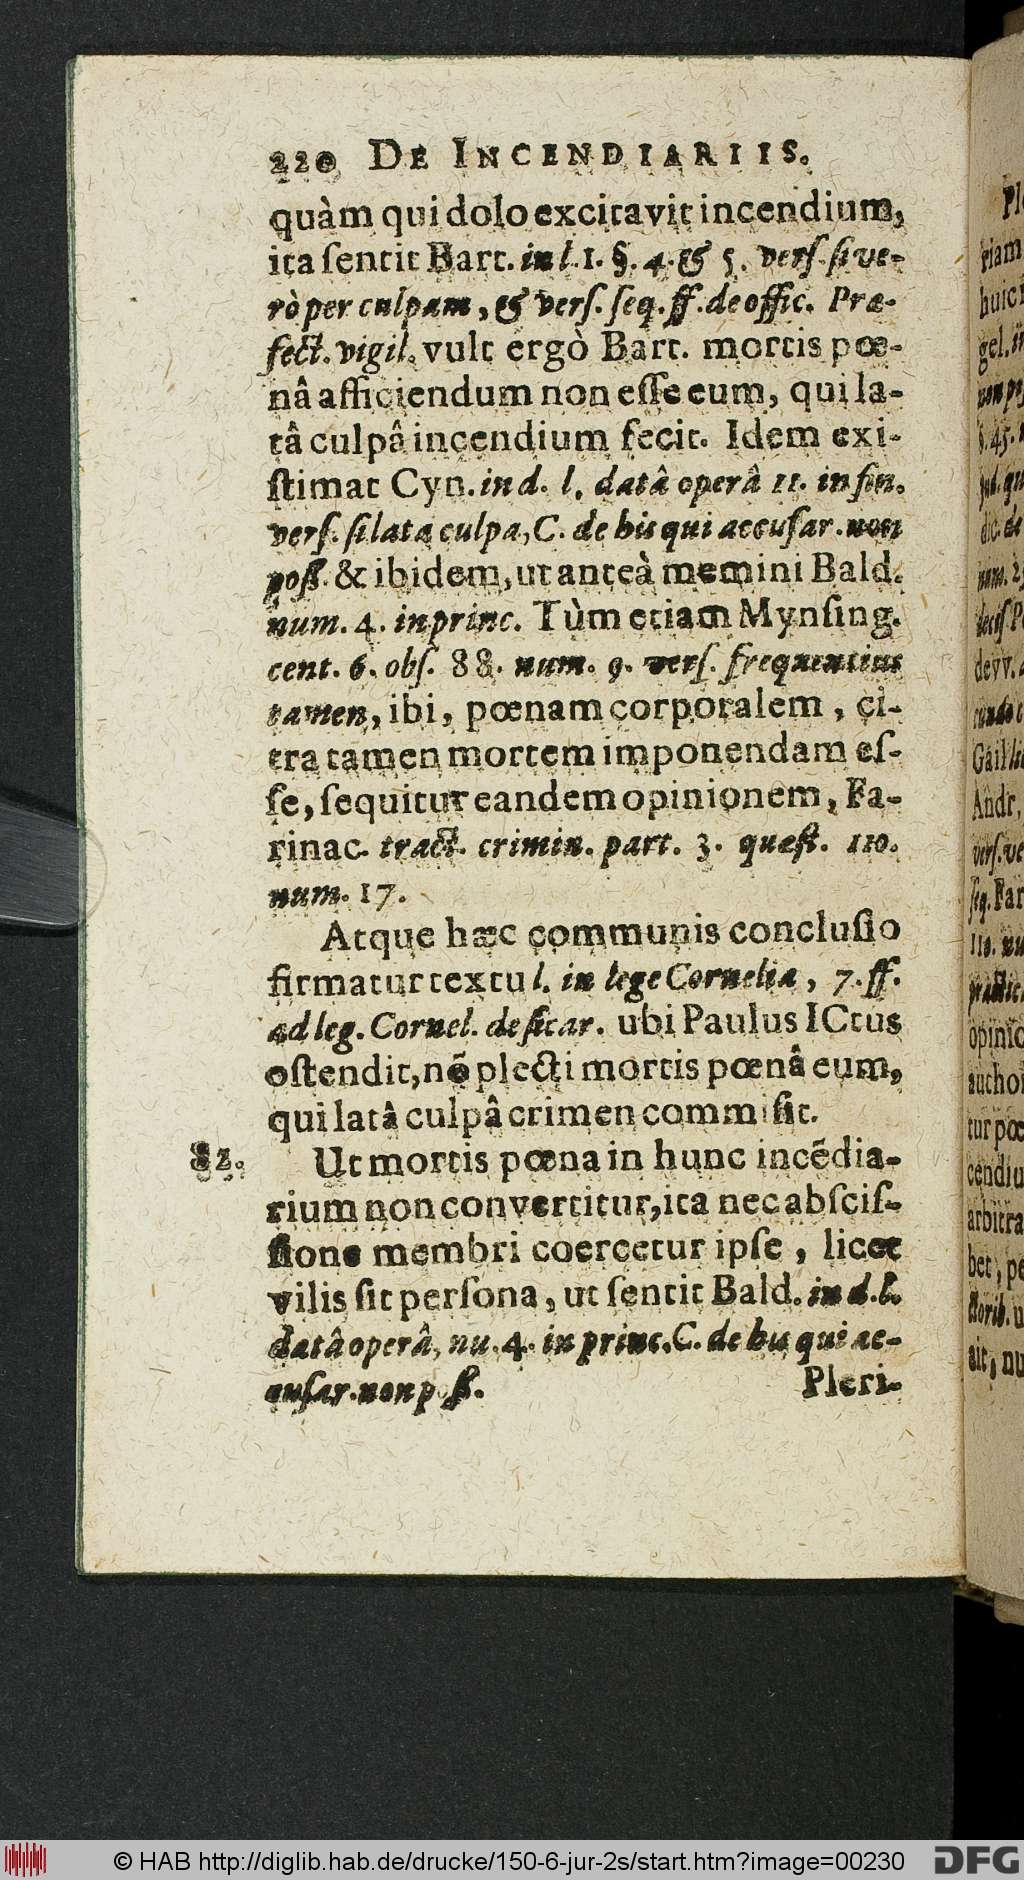 220 DE INCENDIARIIS.
quàm qui dolo excitavit incendium,
ita ſentit Bart. in l. 1. §. 4. & 5. verſ. ſi ve-
rò per culpam, & verſ. ſeq. ff. de offic. Præ-
fect. vigil. vult ergò Bart. mortis pœ-
nâ afficiendum non eſſe eum, qui la-
tâ culpâ incendium fecit. Idem exi-
ſtimat Cyn. in d. l. datâ operâ 11. in fin.
verſ. ſi lata culpa, C. de his qui accuſar. non
poß. & ibidem, ut anteà memini Bald.
num. 4. in princ. Tùm etiam Mynſing.
cent. 6. obſ. 88. num. 9. verſ. frequentius
tamen, ibi, pœnam corporalem, ci-
tra tamen mortem imponendam eſ-
ſe, ſequitur eandem opinionem, Fa-
rinac. tract. crimin. part. 3. quæſt. 110.
num. 17.
Atque hæc communis concluſio
firmatur textu l. in lege Cornelia, 7. ff.
ad leg. Cornel. de ſicar. ubi Paulus ICtus
oſtendit, nõ plecti mortis pœnâ eum,
qui latâ culpâ crimen commiſit.
82. Ut mortis pœna in hunc incẽdia-
rium non convertitur, ita nec abſciſ-
ſione membri coercetur ipſe, licet
vilis ſit perſona, ut ſentit Bald. in d. l.
datâ operâ, nu. 4. in princ. C. de his qui ac-
cuſar. non poß. Pleri-
© HAB http://diglib.hab.de/drucke/150-6-jur-2s/start.htm?image=00230
DFG